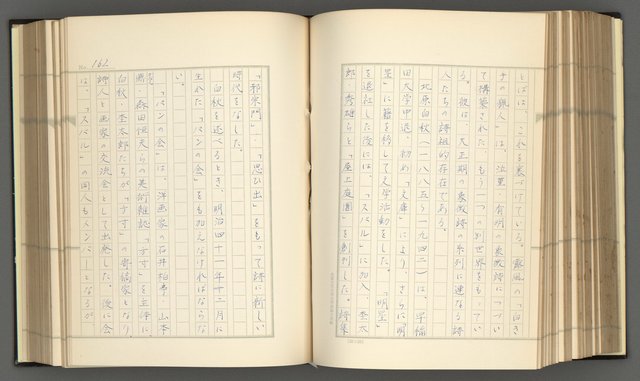 とばは、これを裏づけている。
手の猟人」は、泣菫・有明の象徴詩につづい
て構築された、もう一つの別世界をもってい
る。彼は、大正期の象徴詩の系列に連なる詩
人たちの詩祖的存在である。
北原白秋(一八八五〜一九四二)は、早稲
田大学中退、初め「文庫」により、さらに「明
星」に籍を移して文学活動をした。「明星」
を退社した後には、「スバル」に加入、杢太
郎・秀雄らと「屋上庭園」を創刊した。詩集
「邪宗門」・「思ひ出」をもって詩に新しい
時代をなした。
白秋を述べるとき、明治四十一年十二月に
生れた「パンの会」をも加えなければならな
い。
「パンの会」は、洋画家の石井柏亭・山本
鼎・森田恒友らの美術雑誌「方寸」を主体に、
白秋・杢太郎たちが「方寸」の寄稿家となり、
詩人と画家の交流会として出発した。後に会
は、「スバル」の同人もメンバーとなるが、
No. 162